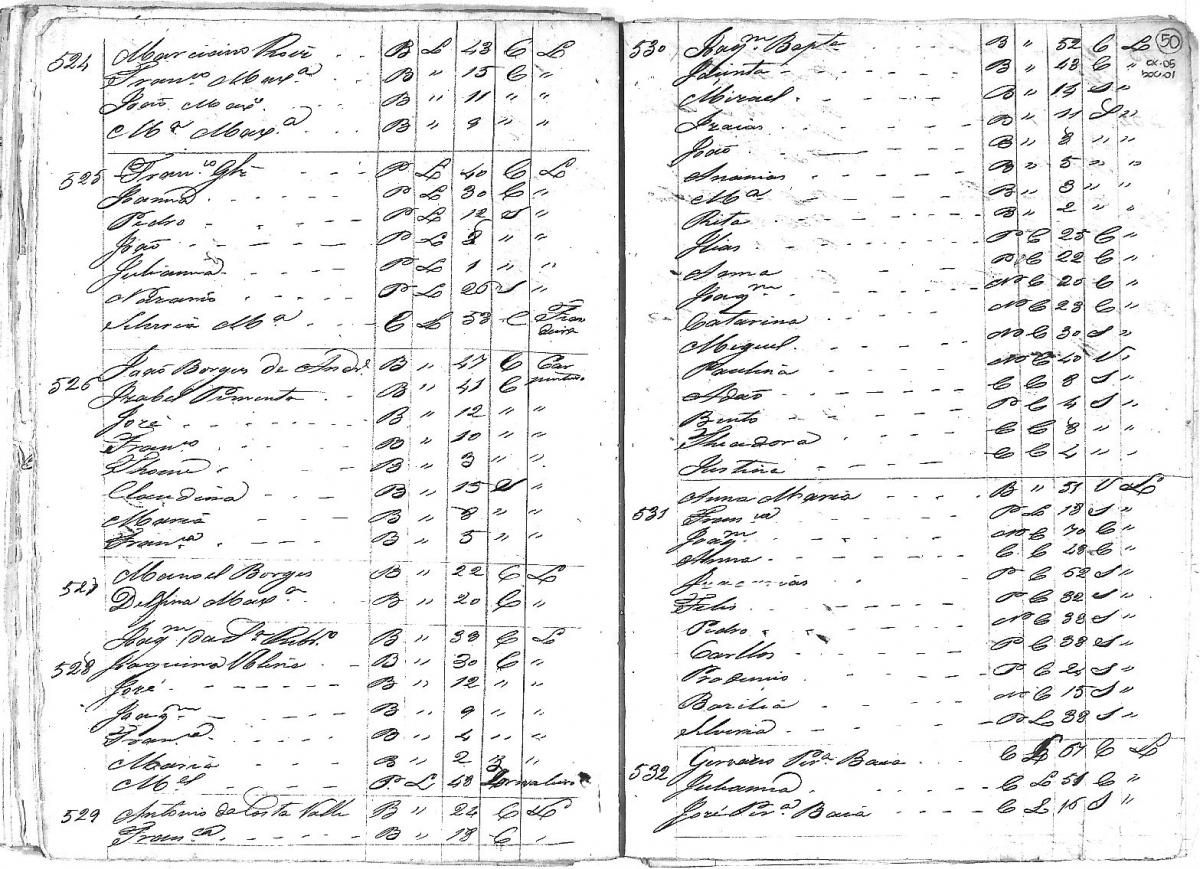 524 Marcisino B L 43 C L
Fran.co Max.a B " 15 C "
João Max.o B " 11 " "
M.a Max.a B " 9 " "
525 Fran.co P L 40 C L
Joanna P L 30 C "
Pedro P L 12 S "
João P L 8 " "
Julianna P L 1 " "
P L 26 S "
M.a C L 53 C
526 João Borges de And.e B " 47 C Carpinteiro
Izabel Pimenta B " 41 C
José B " 12 " "
Fran.co B " 10 " "
Thomé B " 3 " "
Claudina B " 15 S "
Maria B " 8 " "
Fran.ca B " 5 " "
527 Manoel Borges B " 22 C L
Delfina Max.a B " 20 C "
528 Joaq.m da S.a B " 38 C L
Joaquina B " 30 C "
José B " 12 " "
Joaq.m B " 9 " "
Fran.ca B " 4 " "
Maria B " 2 "
M.el P L 48 Jornaleiro
529 Antonio da Costa Valle B " 24 C L
Fran.ca B " 18 C "
50
CX-05
DOC-01
530 Joaq.m Bapta B " 52 C L
Jacinta B " 43 C "
Mizael B " 14 S "
Izaias B " 11 S "
João B " 8 " "
Ananias B " 5 " "
M.a B " 3 " "
Rita B " 2 " "
Elias P C 25 C "
Anna P C 22 C "
Joaq.m N C 20 C "
Catarina N C 23 C "
Miguel N C 30 S "
Paulina N C 40 V "
Adão C C 8 S "
Bento P C 4 S "
Theadora C C 8 " "
Justina C C 4 " "
531 Anna Maria B " 51 V L
Fran.ca P L 18 S "
Joaq.m N C 70 C "
Anna C C 48 C "
P C 52 S "
Felis P C 32 S "
Pedro N C 38 S "
Carllos P C 38 S "
Prodencio P C 24 S "
Bazilia N C 15 S "
Silveria P L 38 S "
532 Gervazio Pir.a Baia C L 67 C L
Julianna C L 51 C "
José Pir.a Baia C L 16 S "